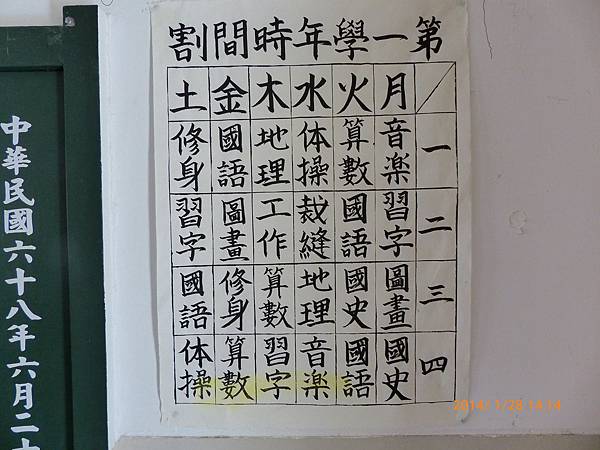 第一學年時間割
月 火 水 木 金 土
一 音楽 算數 体操 地理 國語 修身
二 習字 國語 裁縫 工作 圖畫 習字
三 圖畫 國史 地理 算數 修身 國語
四 國史 國語 音楽 習字 算數 体操
中華民國六十八年六月二十
2014/ 1/28 14:14